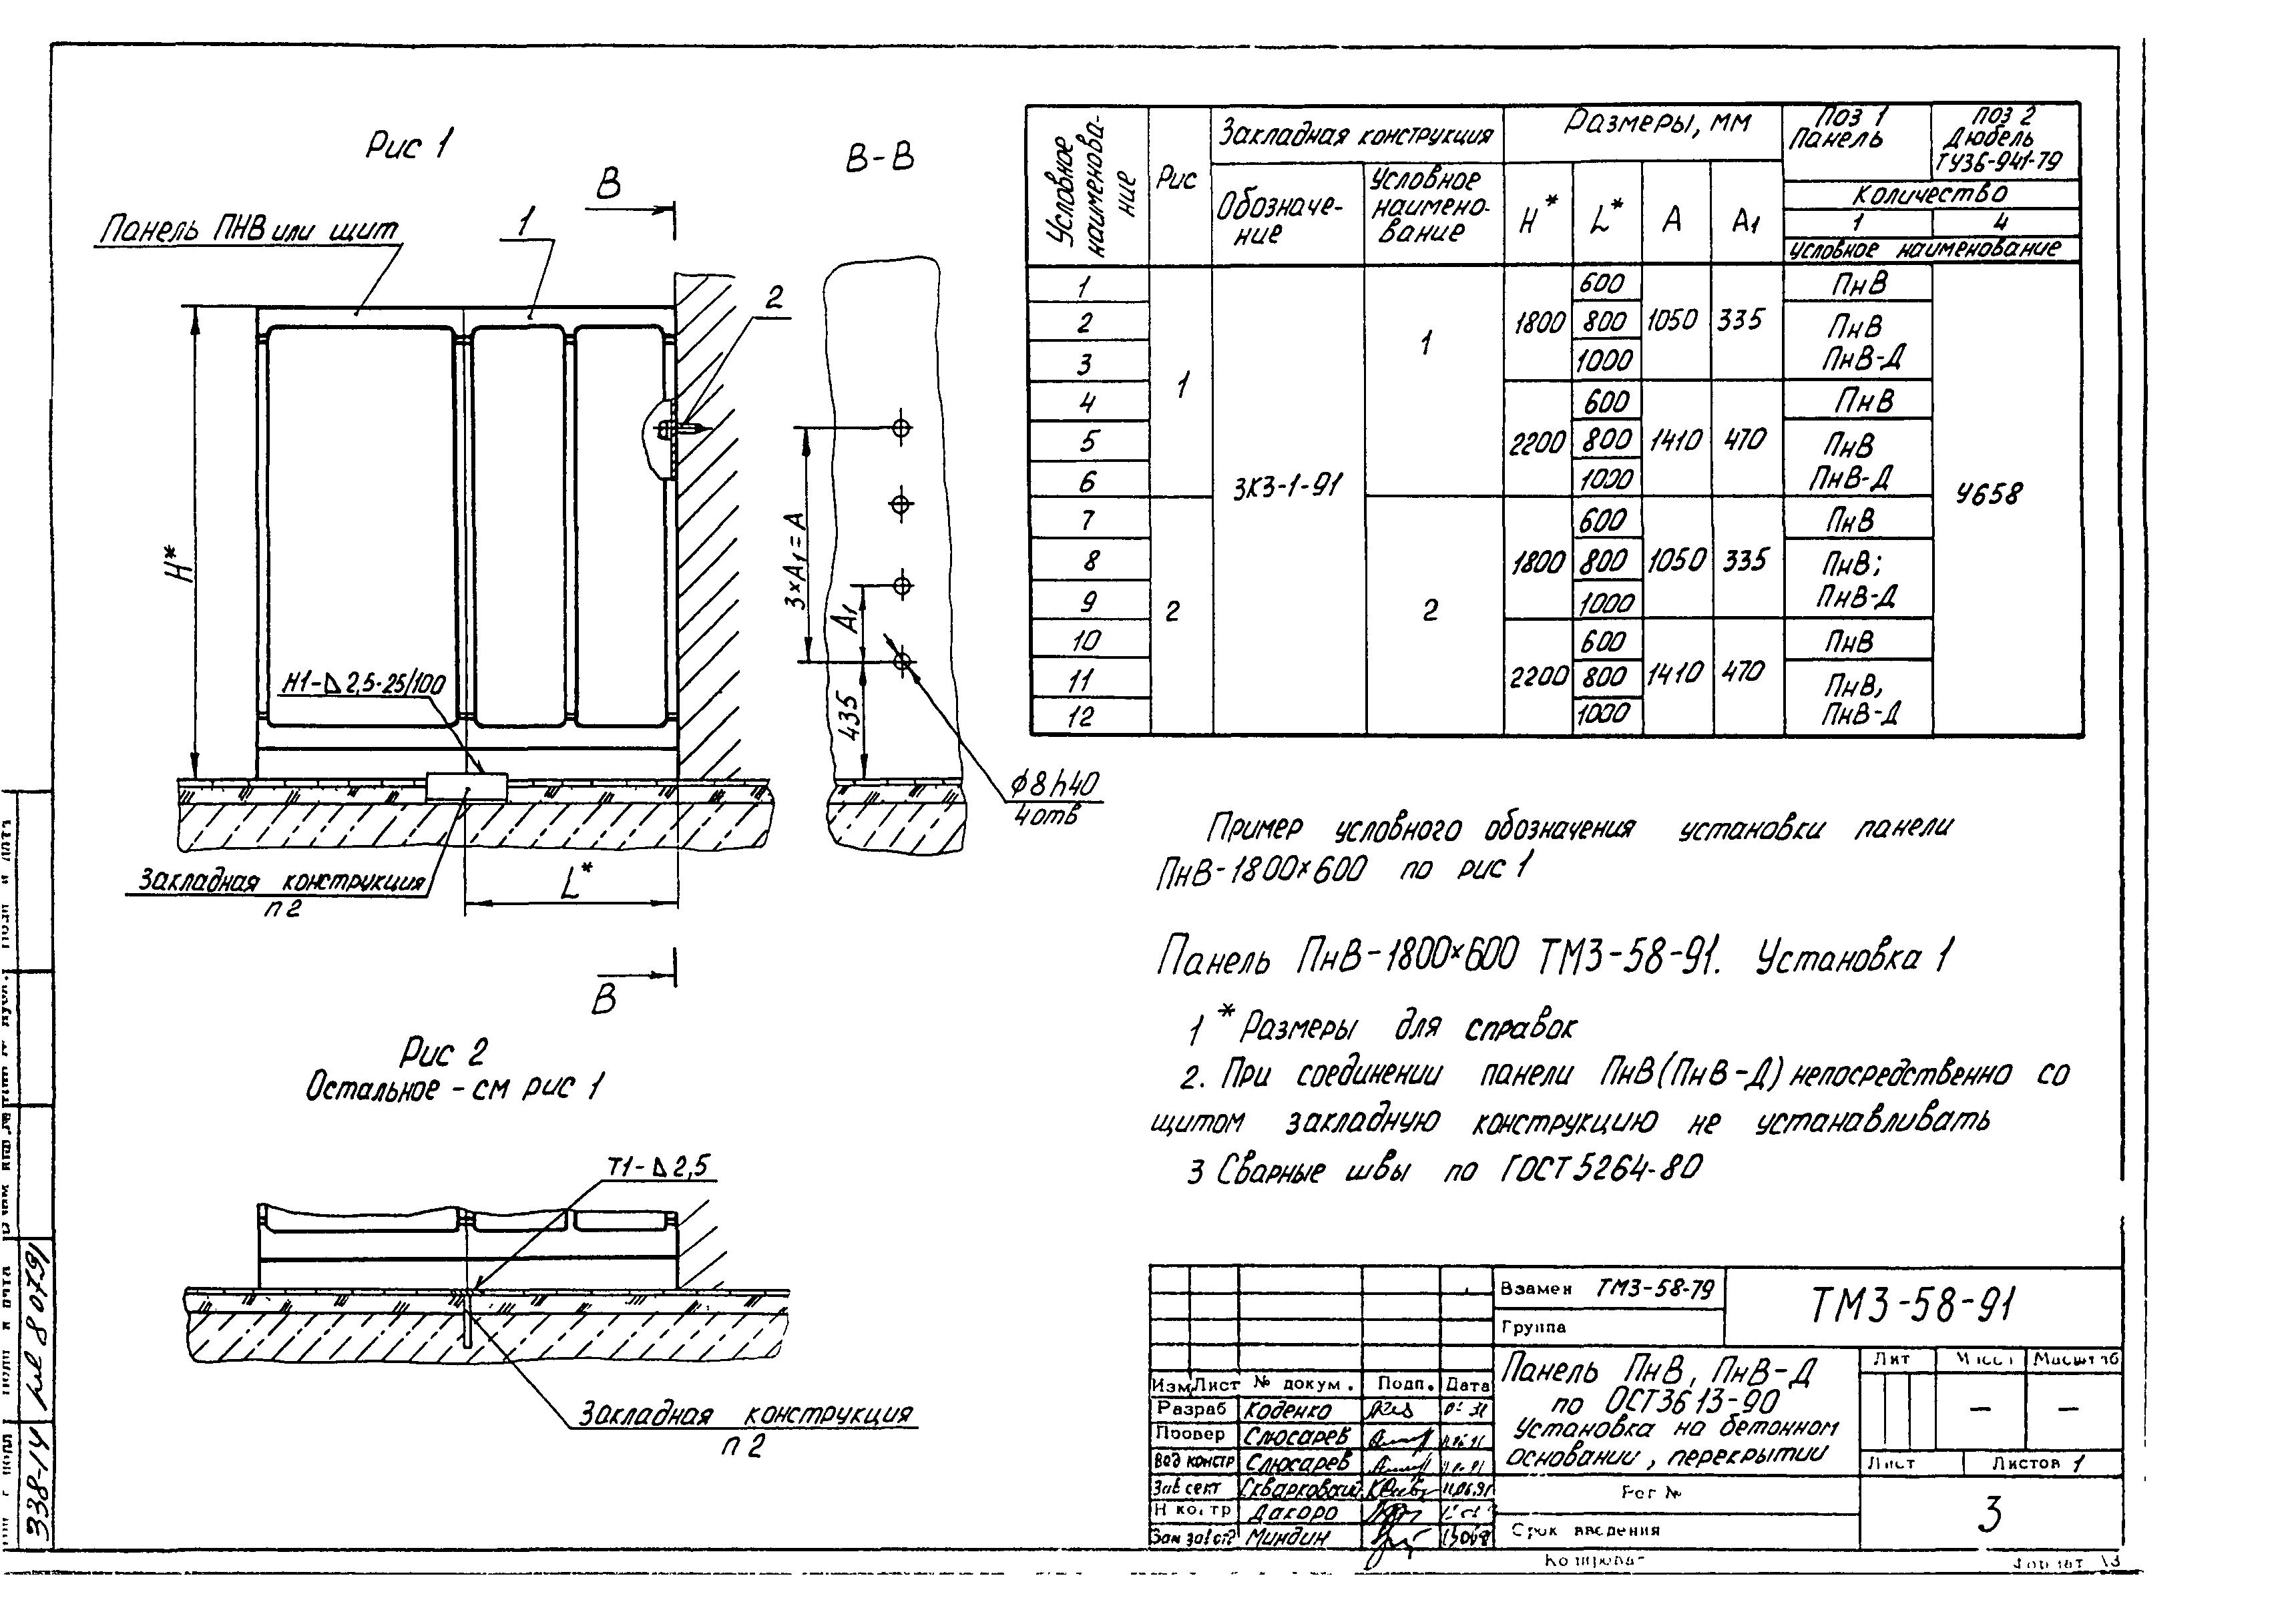 Рис 1
В
В-В
Панель ПНВ или щит
1
2
Н*
3×А1=А
А1
435
Н1-Δ2,5-25/100
⌀8 h40
4 отв
Закладная конструкция
п 2
L*
В
Рис 2
Остальное - см рис 1
Т1-Δ2,5
Закладная конструкция
п 2
Условное наименова-ние
Рис
Закладная конструкция
Размеры, мм
Поз 1 Панель
Поз 2 Дюбель ТУ36-941-79
Обозначе-ние
Условное наимено-вание
Н*
L*
А
А1
Количество
1 4
Условное наименование
1 1 ЗК3-1-91 1 1800 600 1050 335 ПнВ У658
2 800 ПнВ
3 1000 ПнВ-Д
4 2200 600 1410 470 ПнВ
5 800 ПнВ
6 1000 ПнВ-Д
7 2 2 1800 600 1050 335 ПнВ
8 800 ПнВ;
9 1000 ПнВ-Д
10 2200 600 1410 470 ПнВ
11 800 ПнВ,
12 1000 ПнВ-Д
Пример условного обозначения установки панели
ПнВ-1800×600 по рис 1
Панель ПнВ-1800×600 ТМ3-58-91. Установка 1
1 * Размеры для справок
2. При соединении панели ПнВ (ПнВ-Д) непосредственно со
щитом закладную конструкцию не устанавливать
3 Сварные швы по ГОСТ 5264-80
Взамен ТМ3-58-79
Группа
ТМ3-58-91
Панель ПнВ, ПнВ-Д
по ОСТ36 13-90
Установка на бетонном
основании, перекрытии
Лит Масштаб
— —
Лист Листов 1
Изм Лист № докум. Подп. Дата
Разраб Коденко
Провер Слюсарев
Вед констр Слюсарев
Зав сект Скварковский 11.06.91
Н контр Дакоро
Миндин
Рег №
Срок введения
3
Копировал
Формат А3
338-14
8 07 91